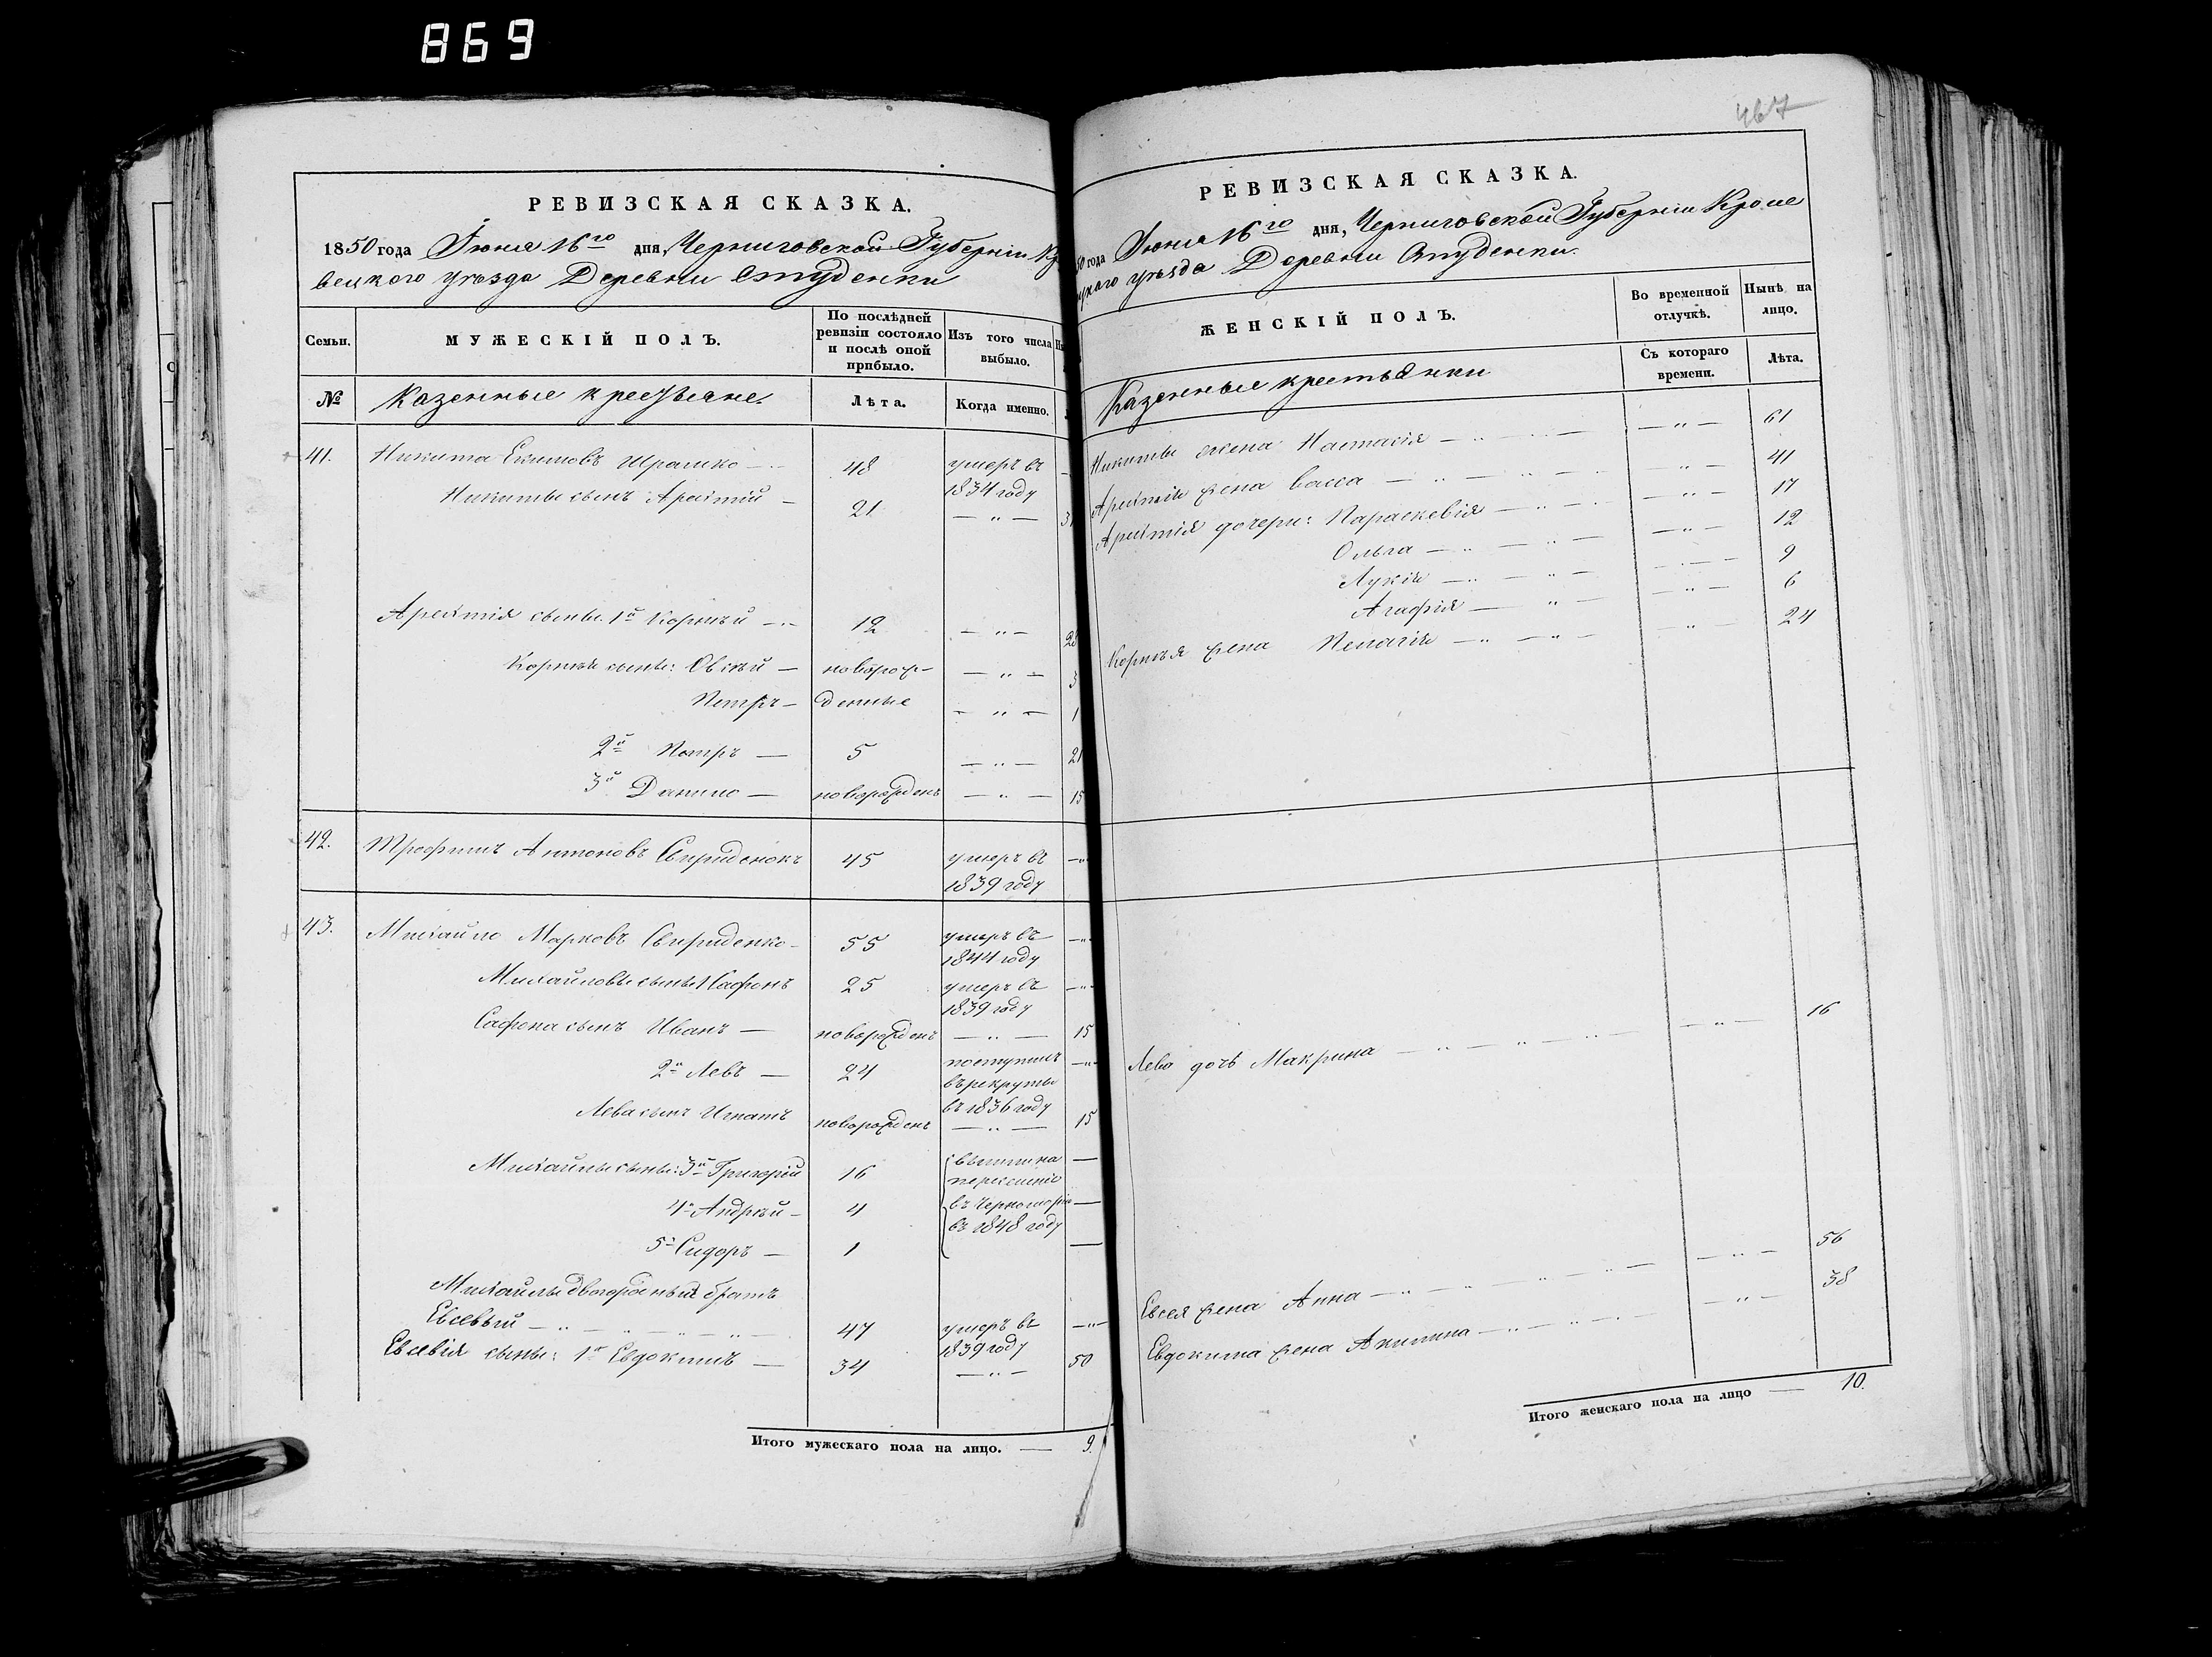 869
467
РЕВИЗСКАЯ СКАЗКА.
1850 года Іюня 16го дня, Черниговской Губерніи Кр
вецкого уѣзда Деревни Студенки
Семьи.
МУЖЕСКІЙ ПОЛЪ.
По послѣдней ревизіи состояло и послѣ оной прибыло.
Изъ того числа выбыло.
№
Казенные крестьяне.
Лѣта.
Когда именно.
41. Никита Екимовъ Шрамко — 48 умеръ въ
1834 году
Никиты сынъ Арефтій — 21 — „ — 3
Арефтія сыны 1й Корнѣй — 12 — „ — 28
Корнѣя сыны: Евсѣй — новорож- — „ — 3
Петръ — денные — „ — 1
2й Петръ — 5 — „ — 21
3й Данило — новорожденъ — „ — 15
42. Трофимъ Антоновъ Свириденокъ 45 умеръ въ — „
1839 году
43. Михайло Марковъ Свириденко — 55 умеръ въ — „
1844 году
Михайловы сыны 1 Сафонъ 25 умеръ въ — „
1839 году
Сафона сынъ Иванъ — новорожденъ — „ — 15
2й Левъ — 24 поступилъ — „
въ рекруты
въ 1836 году
Лева сынъ Игнатъ новорожденъ — „ — 15
Михайлы сыны: 3й Григорій 16 вышли на —
переселеніе
4й Андрѣй — 4 въ Черноморію —
въ 1848 году
5й Сидоръ — 1 —
Михайлы двоюродный братъ
Евсевій — „ — „ — „ — „ — 47 умеръ въ — „ —
1839 году
Евсевія сыны: 1й Евдокимъ — 34 — „ — 50
Итого мужескаго пола на лицо. — 9.
РЕВИЗСКАЯ СКАЗКА.
50 года Іюня 16го дня, Черниговской Губерніи Кроле
цкаго уѣзда Деревни Студенки.
ЖЕНСКІЙ ПОЛЪ.
Во временной отлучкѣ.
Нынѣ на лицо.
Казенные крестьянки
Съ котораго времени.
Лѣта.
Никиты жена Настасія — „ — — „ — 61
Арефтія жена Васса — „ — „ — — „ — 41
Арефтія дочери: Параскевія — „ — — „ — 17
Ольга — „ — „ — — „ — 12
Лукія — „ — „ — — „ — 9
Агафія — „ — — „ — 6
Корнѣя жена Пелагія — „ — „ — — „ — 24
Лева дочь Макрина — „ — „ — „ — — „ — 16
Евсея жена Анна — „ — „ — „ — „ — — „ — 56
Евдокима жена Акилина — „ — „ — — „ — 38
Итого женскаго пола на лицо — 10.